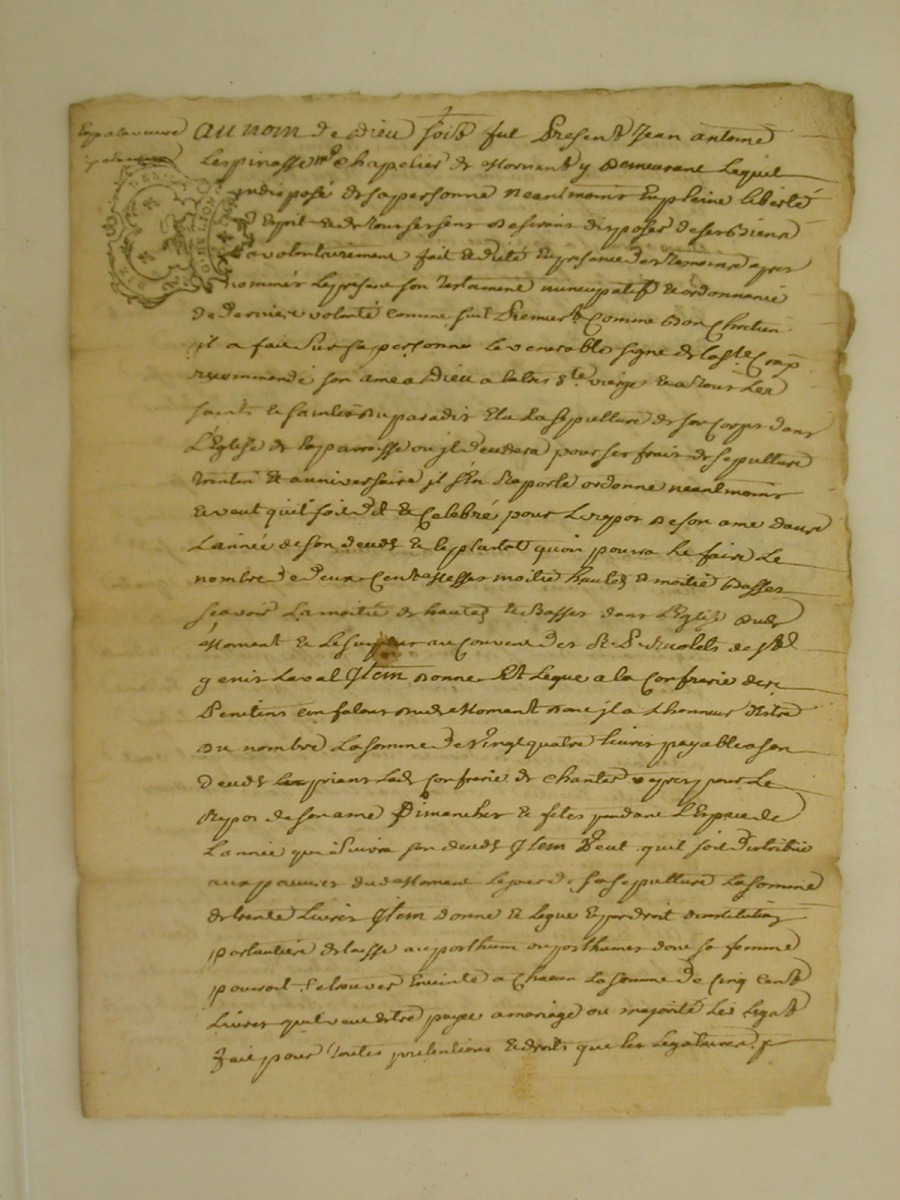 au nom de dieu soit fut Present Jean antoine
Lespinasse m.e Chapelier de Mornant y demeurant Lequel
indisposé de sa personne neantmoins En pleine liberté
d'Esprit Et de tous ses sens desirant disposer de ses biens
a volontairement fait Et dicté En presance des temoins apres
nommés Le present son testament nuncupatif Et ordonnance
de Derniere volonté comme suit Premier.t Comme bon Chretien
il a fait sur sa personne le venerable signe de la s.te Croix
recommandé son ame a Dieu a la bis s.te vierge Et a tous Les
saints Et saintes du paradis Elu La sepulture de son Corps dans
L'Eglise de la parroisse ou il deceddera pour ses frais de sepulture
Et anniversaire il s'En Raporte ordonne neantmoins
Et veut qu'il soit dit Et Celebré pour Le repos de son ame dans
L'année de son deceds Et le plustot qu'on pourra Le faire Le
nombre de Deux Cent Messes moitié hautes Et moitié basses
scavoir La moitié de hautes Et Basses dans L'Eglise dud.
Mornant Et Le surplus au Couvent des R. P. Recolets de St
genis Laval Item donne Et Legue a la Confrerie des
Penitens dud. Mornant dont il a L'honneur d'Etre
du nombre La somme de vingt quatre livres payable a son
deceds priant Lad. Confrerie de Chanter vepres pour Le
Repos de son ame Dimanches Et fetes pendant L'Espace de
L'année qui suivra son deceds Item Veut qu'il soit Distribué
aux pauvres dud. Mornant Le jour de sa sepulture La somme
de trente Livres Item donne Et Legue Et par droit d'institution
particuliere delaisse au posthum ou posthumes dont sa femme
pourroit se trouver Enceinte a Chacun La somme de Cinq Cent
Livres qu'il veut Etre payée a mariage ou majorité Les Legats
fait pour toutes pretentions Et droits que les Legataires